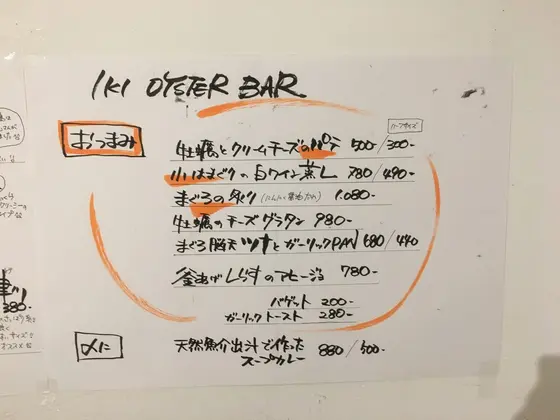 IKI OYSTER BAR
おつまみ
ハーフサイズ
牡蠣とクリームチーズのパテ 500/300-
小はまぐりの白ワイン蒸し 780/490-
まぐろの炙り 1.080-
牡蠣のチーズグラタン 980-
まぐろ脳天ツナとガーリックPAN 680/440
釜あげしらすのアヒージョ 780-
バゲット 200-
ガーリックトースト 280-
〆に
天然魚介出汁で作った
スープカレー 880/500-
380-